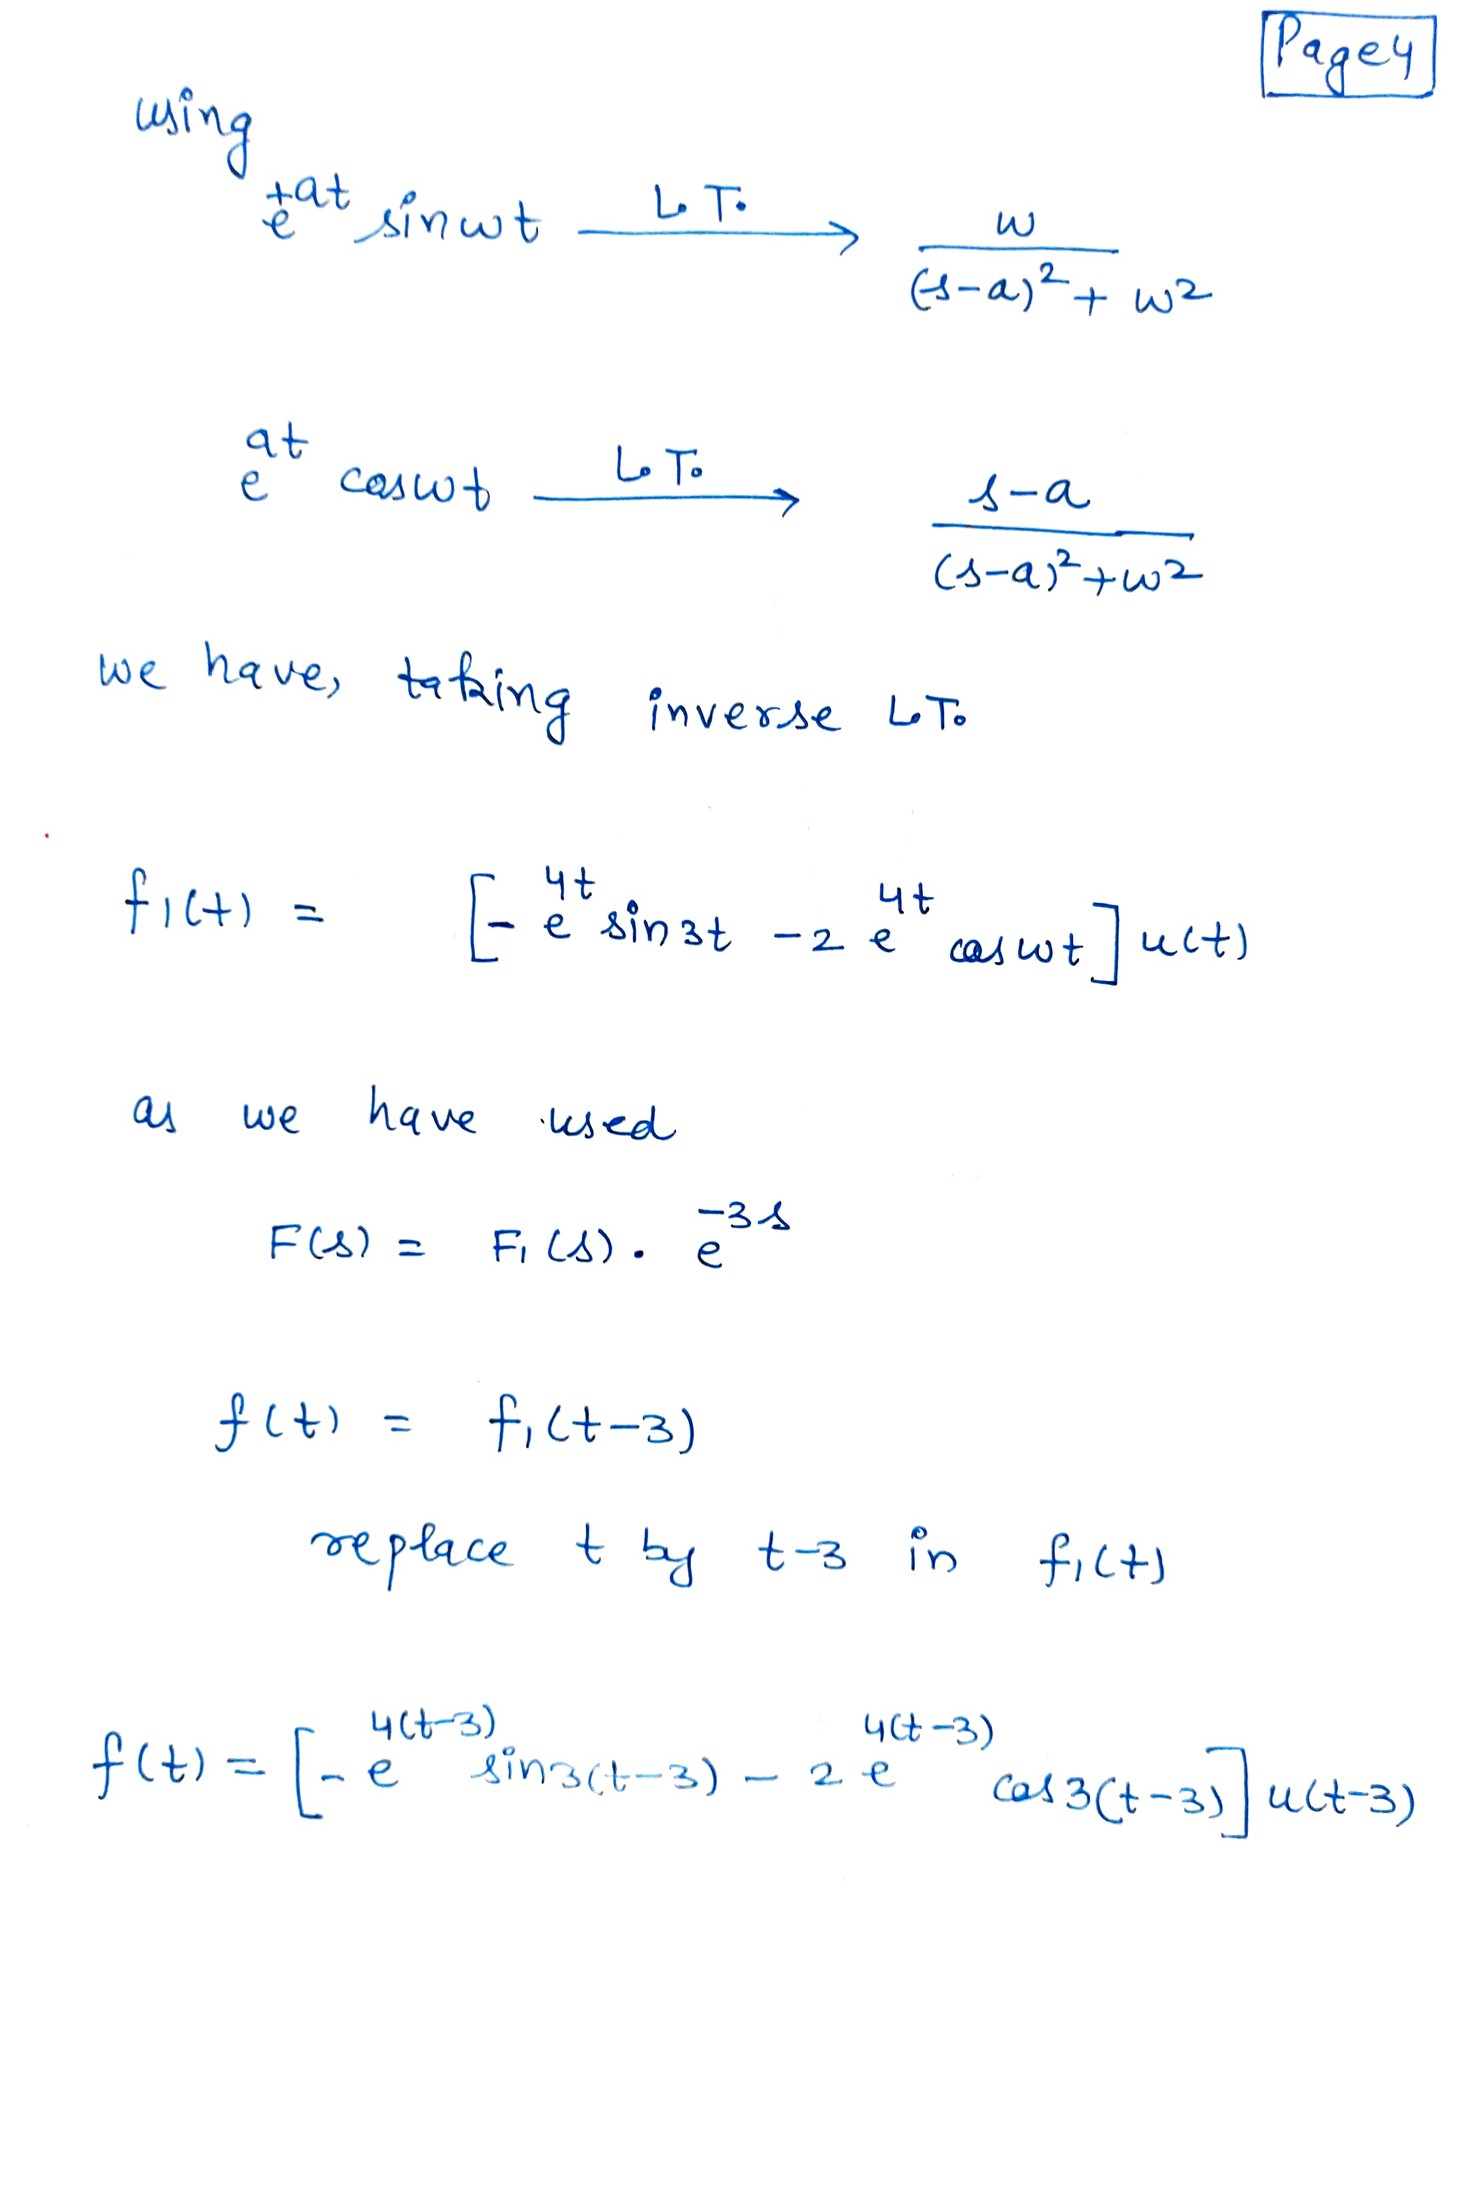 Page 4
using
e^{+at} sinwt L.T. → w / ((s-a)^2 + w^2)
e^{at} coswt L.T. → s-a / ((s-a)^2 + w^2)
we have, taking inverse L.T.
f1(t) = [- e^{4t} sin3t - 2 e^{4t} coswt] u(t)
as we have used
F(s) = F1(s). e^{-3s}
f(t) = f1(t-3)
replace t by t-3 in f1(t)
f(t) = [- e^{4(t-3)} sin3(t-3) - 2 e^{4(t-3)} cos3(t-3)] u(t-3)